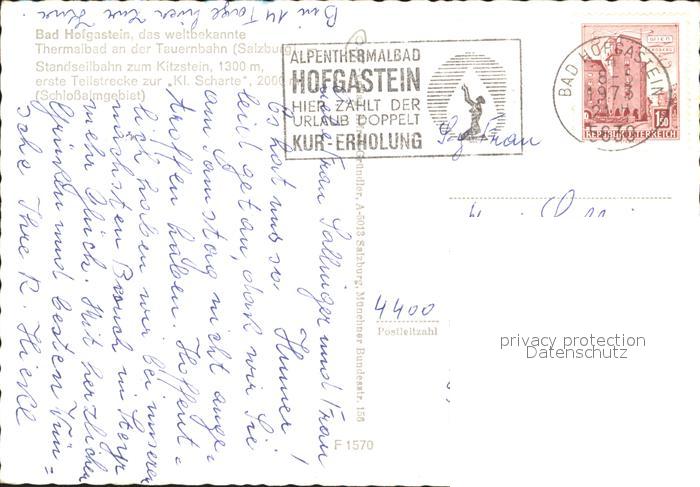 Bad Hofgastein, das weltbekannte
Thermalbad an der Tauernbahn (Salzburg
Standseilbahn zum Kitzstein, 1300 m,
erste Teilstrecke zur „Kl. Scharte“, 2000 m
(Schloßalmgebiet)
ALPENTHERMALBAD
HOFGASTEIN
HIER ZÄHLT DER
URLAUB DOPPELT
KUR-ERHOLUNG
BAD HOFGASTEIN
1973
WIEN
1.50
REPUBLIK ÖSTERREICH
Frau
4400
Postleitzahl
privacy protection
Datenschutz
Gründler, A-5013 Salzburg, Münchner Bundesstr. 156
F 1570
Frau Sallinger und Frau
Es hat uns so
leid getan, daß wir Sie
am Samstag nicht ange=
troffen haben. Hoffent=
lich haben wir bei unserem
nächsten Besuch in Steyr
mehr Glück. Mit herzlichen
Grüßen und besten Wün=
sche Ihre R.
Bin 14 Tage hier zur Kur.